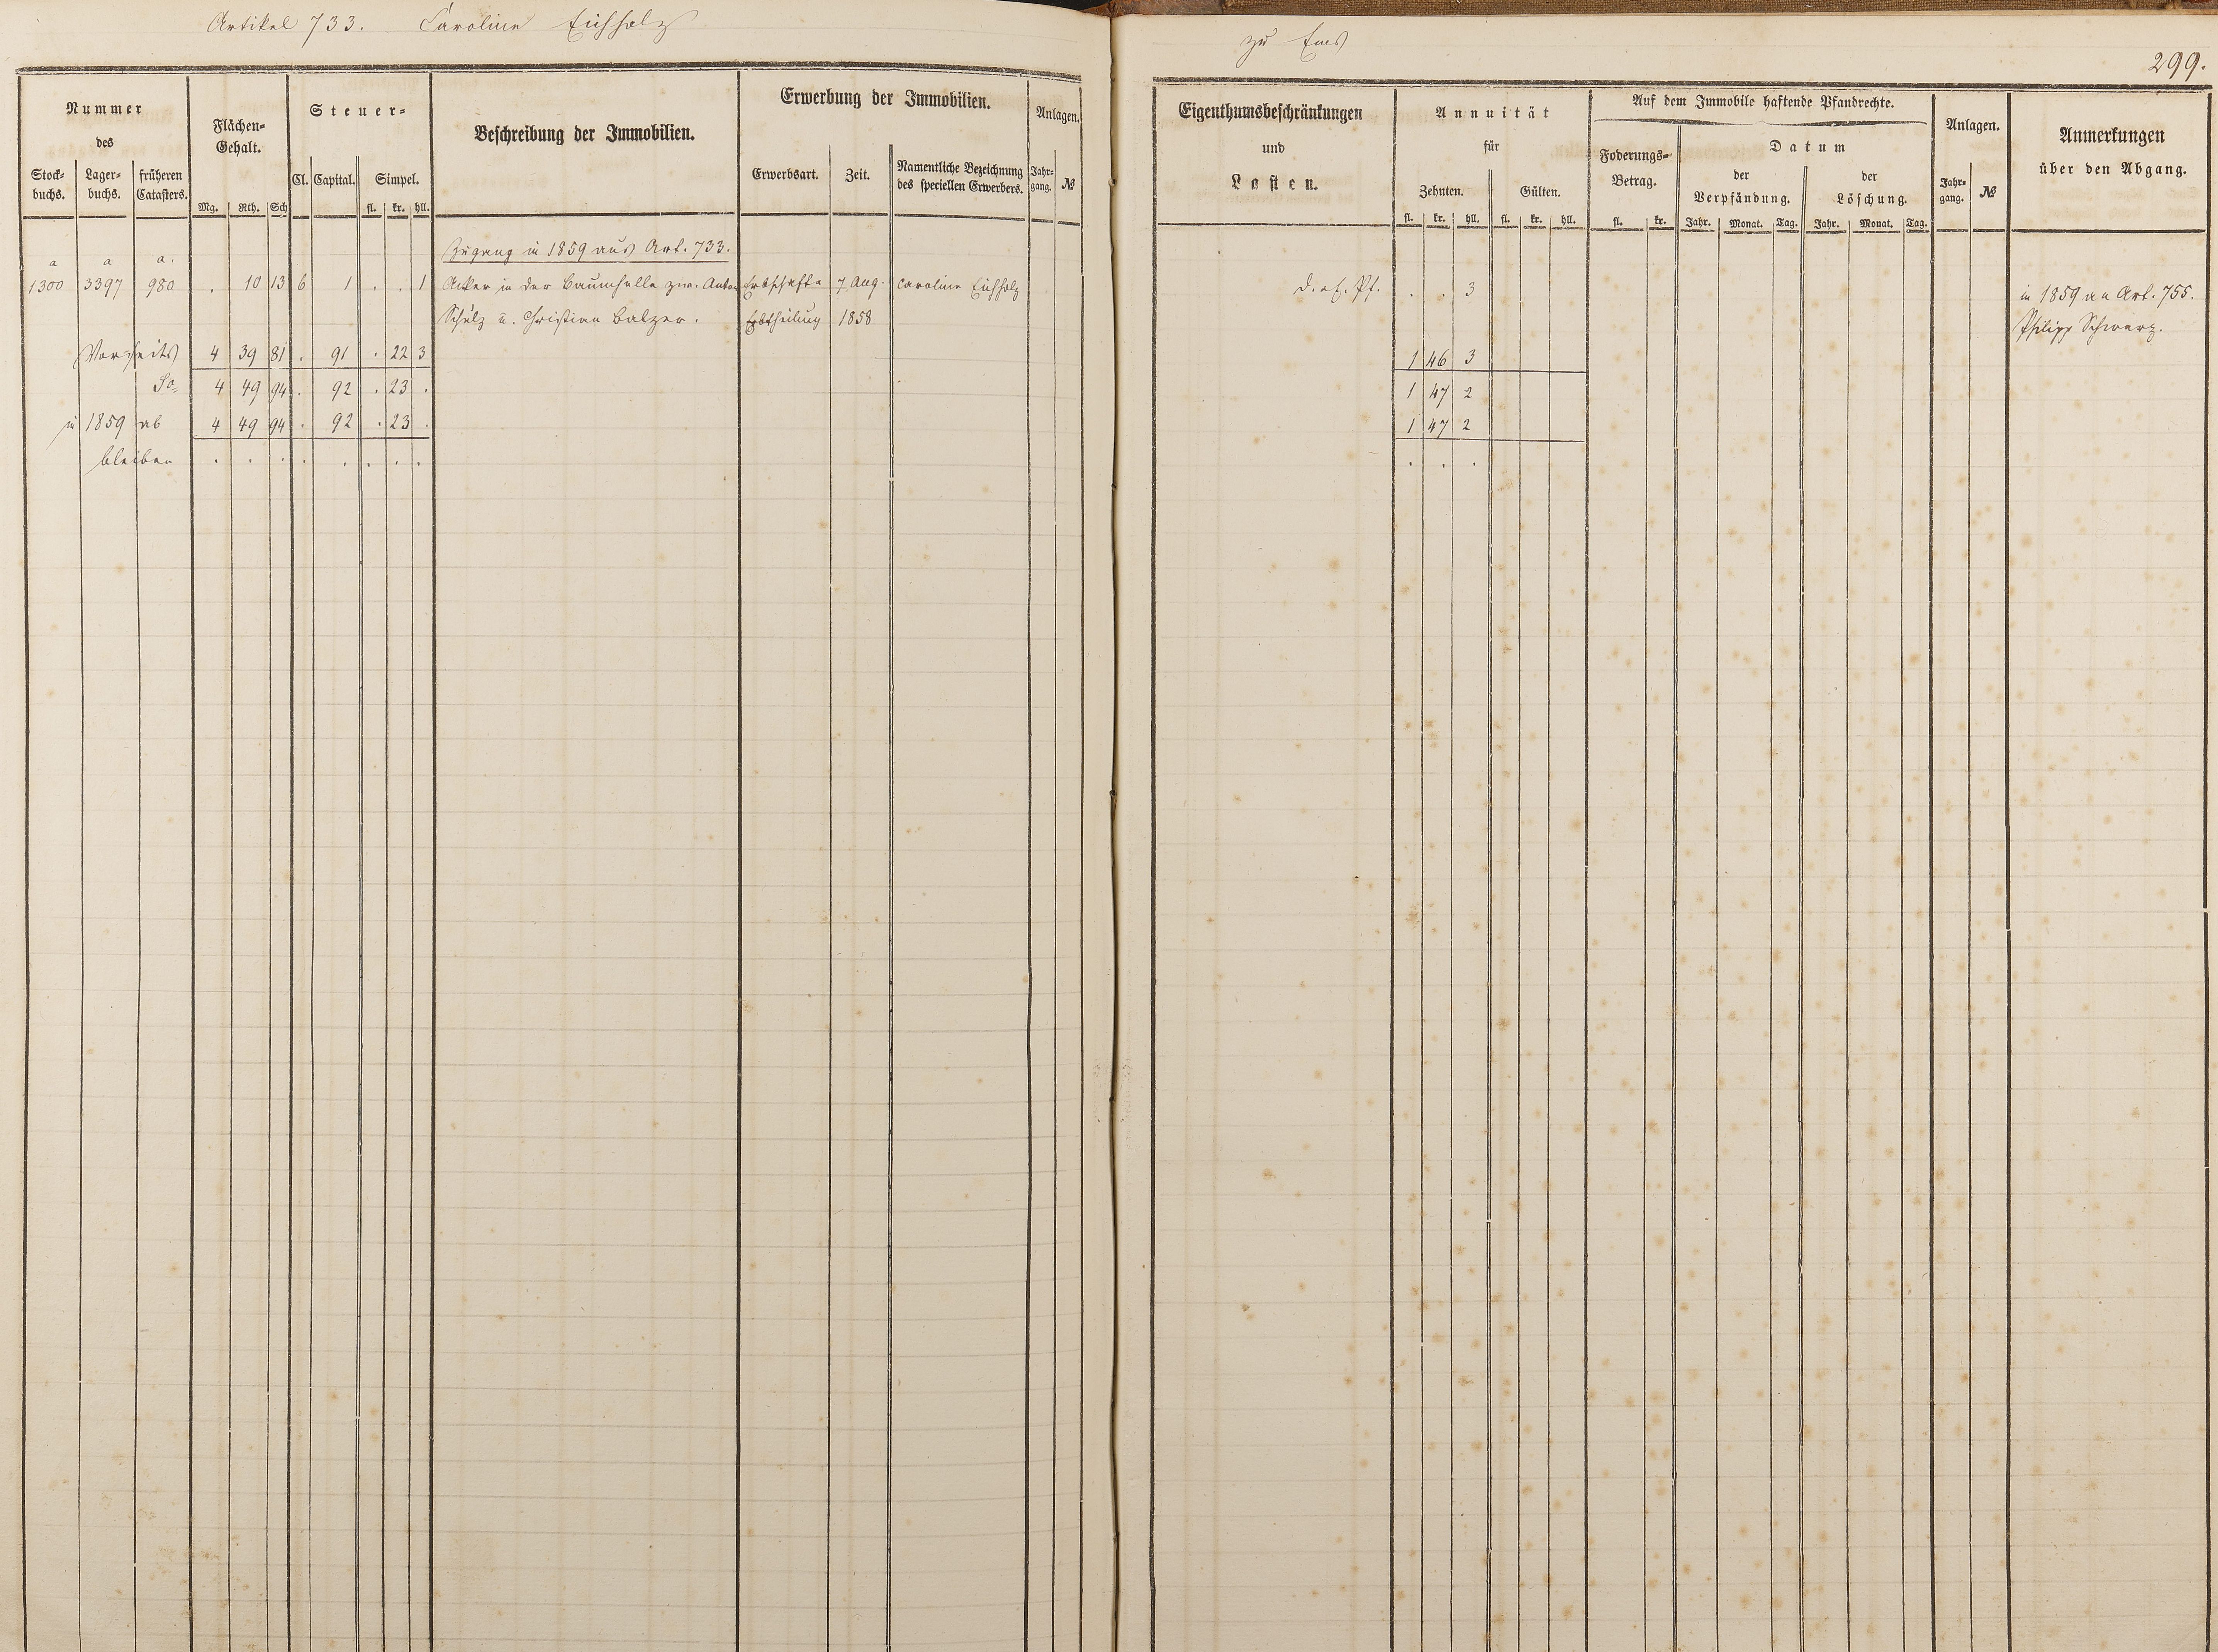 Artikel 733. Caroline Eichholz
zu Ems
299.
Nummer
des
Stock-
buchs.
Lager-
buchs.
früheren
Catasters.
Flächen-
Gehalt.
Mg. Rth. Sch
Steuer-
Cl. Capital. Simpel.
fl. kr. hll.
Beschreibung der Immobilien.
Erwerbung der Immobilien.
Erwerbsart. Zeit.
Namentliche Bezeichnung
des speciellen Erwerbers.
Anlagen.
Jahr-
gang.
№
Zugang in 1859 aus Art. 733.
a a a.
1300 3397 980 . 10 13 6 1 . . 1 Acker in der Baumhelle zw. Anton Erbschaft u. 7 Aug. Caroline Eichholz
Schulz u. Christian Balzer. Erbtheilung 1858
Vorseits 4 39 81 . 91 . 22 3
Sa. 4 49 94 . 92 . 23 .
in 1859 ab 4 49 94 . 92 . 23 .
bleiben . . . . . . . .
Eigenthumsbeschränkungen
und
Lasten.
Annuität
für
Zehnten. Gülten.
fl. kr. hll. fl. kr. hll.
Auf dem Immobile haftende Pfandrechte.
Foderungs-
Betrag.
fl. kr.
Datum
der
Verpfändung.
Jahr. Monat. Tag.
der
Löschung.
Jahr. Monat. Tag.
Anlagen.
Jahr-
gang.
№
Anmerkungen
über den Abgang.
. . 3 in 1859 an Art. 755.
Philipp Schwarz.
1 46 3
1 47 2
1 47 2
. . .